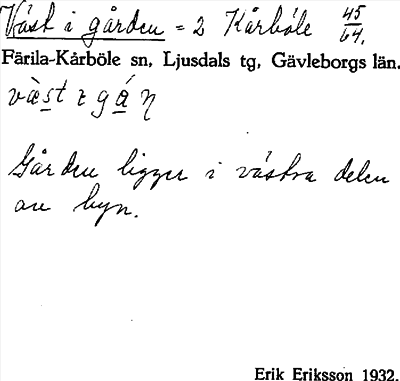 Väst i gården = 2 Kårböle 45/64.
Färila-Kårböle sn, Ljusdals tg, Gävleborgs län.
væ̀st ɩ gá̱ n̥
Gården ligger i västra delen
av byn.
Erik Eriksson 1932.